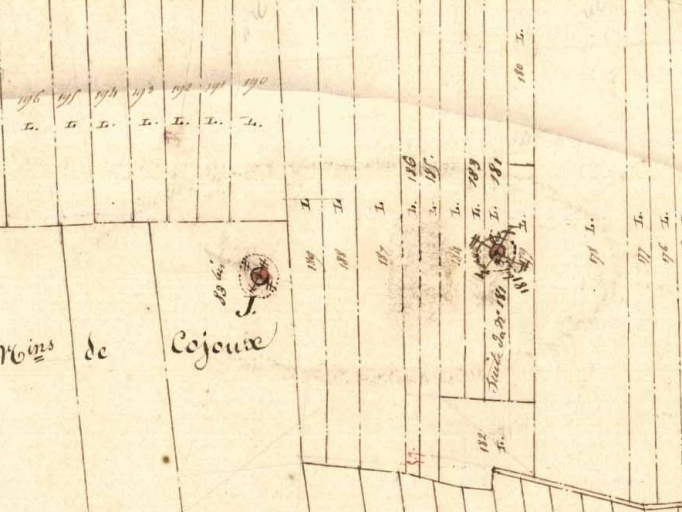 196 195 194 193 192 191 190
L. L. L. L. L. L. L.
180 L.
186 185 183 181
L L L L. L. L. L. L. L. L. L L.
189 188 187 184 179 178 177 176
83 bis
J.
181
Suite du N° 181
Mins de Cojoux
182 L.